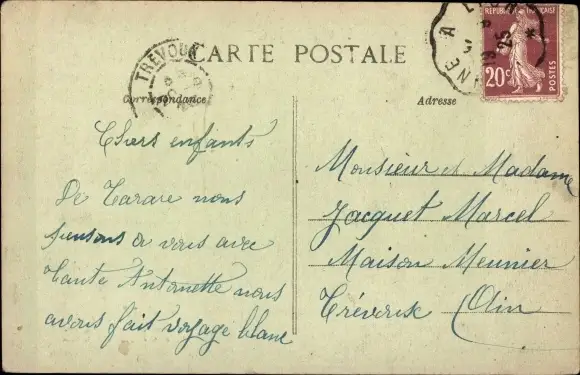 CARTE POSTALE
RÉPUBLIQUE FRANÇAISE
20c POSTES
TREVOUX
25
Correspondance
Adresse
Chers enfants
De Tarare nous
pensons a vous avec
Tante Antoinette nous
avons fait voyage blanc
Monsieur et Madame
Jacquet Marcel
Maison Meunier
Trévoux Ain